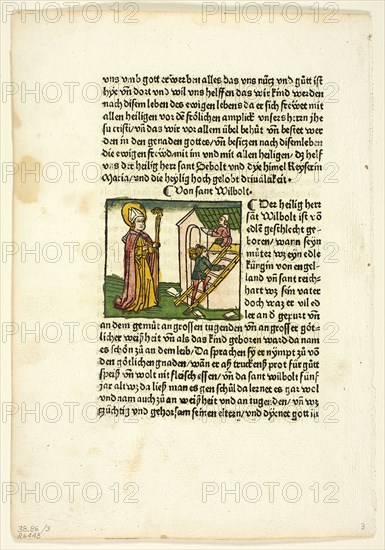 uns umb gott erwerben alles das uns nutz und gutt ist
hye uñ dort und wil uns helffen das wir kind werden
nach disem leben des ewigen lebens da er sich frewet mit
allen heiligen vor dē frölichen amplick unsers herrn jhe
su cristi/ uñ das wir vor allem übel behüt uñ bestet wer
den in den genaden gottes/ uñ besiczen nach disem leben
die ewigen frewd mit im und mit allen heiligen/ dz helf
uns der heilig herr sant Sebolt und dye himel Keyserin
Maria/ und die heylig hoch gelobt driualtikeit.
¶ Von sant Wilbolt.
¶ Der heilig herr
sāt Wilbolt ist vō
edlē geschlecht ge
boren/ wann seyn
muter wz eyn edle
kürgin von engel-
land uñ sant reich-
hart wz sein vater
doch waz er vil ed
ler an d̄ gepurt uñ
an dem gemüt an grossen tugenden uñ an grosser göt-
licher weißheit uñ als das kind geboren ward da nam
es schon zū an dem leib/ Da sprachen sy er nympt zū vō
den götlichen gnaden/ wān er aß truckenß prot für gūt
speiß uñ wolt nit fleisch essen/ uñ da sant wilbolt fünf
jar alt wz da ließ man es gen schūl da lernet es gar wol
und nam auch zū an weißheit und an tugenden/ uñ wz
züchtig und gehorsam seinen eltern/ und dyenet gott in
38.86/3
R6448
3
PHOTO 12
PHOTO12